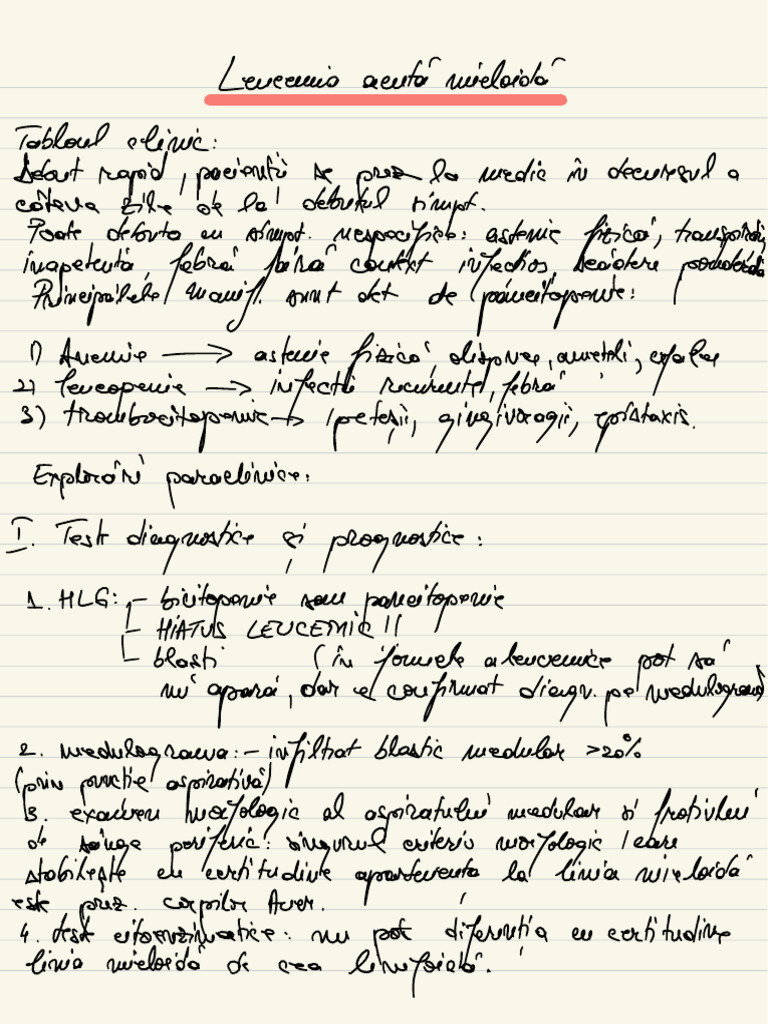 Leucemia acută mieloidă
Tabloul clinic:
Debut rapid, pacienții se prez la medic în decursul a
câteva zile de la debutul simpt.
Poate debuta cu simpt. nespecifice: astenie fizică, transpirații,
inapetență, febră fără context infecțios, scădere ponderală
Principalele manif. sunt det de pancitopenie:
1) Anemie → astenie fizică, dispnee, amețeli, cefalee
2) leucopenie → infecții recurente, febră
3) trombocitopenie → peteșii, gingivoragii, epistaxis.
Explorări paraclinice:
I. Teste diagnostice și prognostice:
1. HLG: - bicitopenie sau pancitopenie
- HIATUS LEUCEMIC !!
- blasti (în formele aleucemice pot să
nu apară, dar e confirmat diagn. pe medulogramă)
2. medulograma: - infiltrat blastic medular >20%
(prin puncție aspirativă)
3. examen morfologic al aspiratului medular si frotiului
de sânge periferic: singurul criteriu morfologic care
stabilește cu certitudine apartenența la linia mieloidă
este prez. corpilor Auer.
4. teste citoenzimatice: nu pot diferenția cu certitudine
linia mieloidă de cea limfoidă.